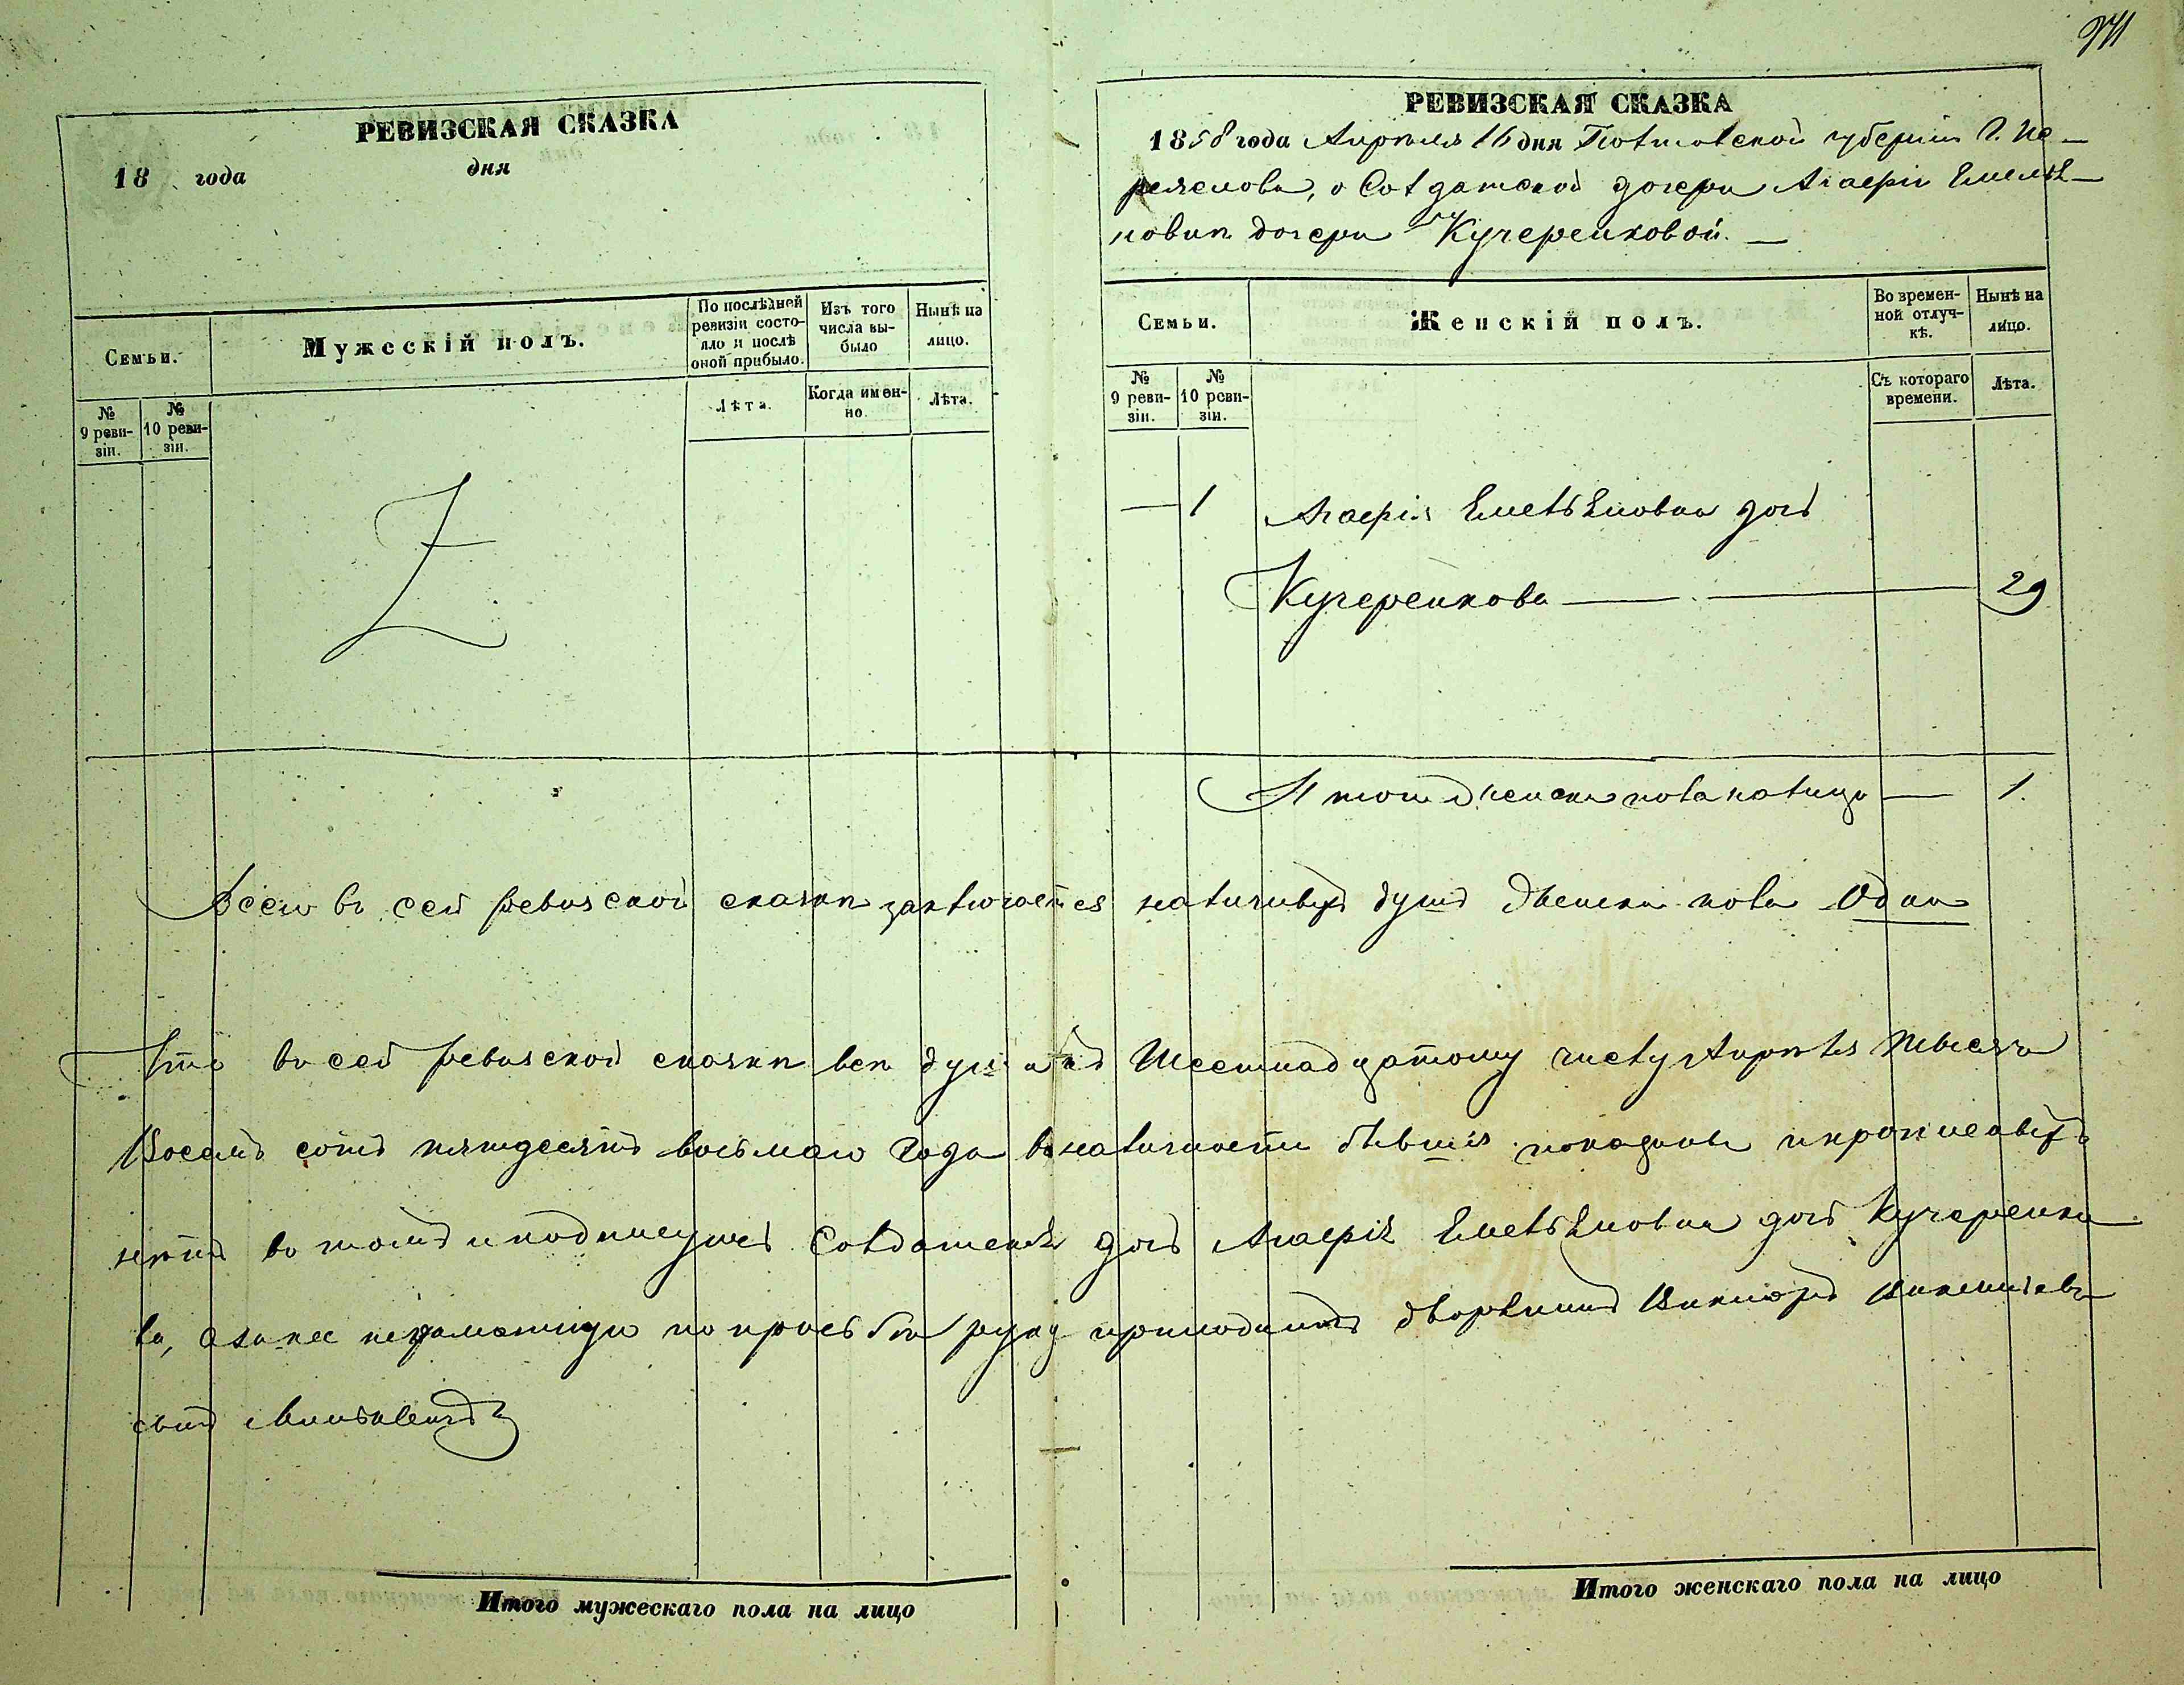 РЕВИЗСКАЯ СКАЗКА
18 года дня
Семьи.
Мужескій полъ.
По послѣдней ревизіи состояло и послѣ оной прибыло.
Изъ того числа выбыло
Нынѣ на лицо.
№ 9 ревизіи.
№ 10 ревизіи.
Лѣта.
Когда именно.
Лѣта.
РЕВИЗСКАЯ СКАЗКА
1858 года Апрѣля 16 дня Полтавской губерніи Г. Пе-
реяслова, о Солдатской дочери Агафіи Емелья-
новнѣ дочери Кучеренковой. —
Семьи.
Женскій полъ.
Во временной отлучкѣ.
Нынѣ на лицо.
№ 9 ревизіи.
№ 10 ревизіи.
Съ котораго времени.
Лѣта.
— 1 Агафія Емельяновна дочь
Кучеренкова — — 29
Итого женска пола налицо — 1.
Всего въ сей ревизской сказкѣ заключается наличныхъ душъ женска пола Одна
Что въ сей ревизской сказкѣ всѣ души къ Шестнадцатому числу Апрѣля тысяча
Восемь сотъ пятдесятъ восьмаго года въ наличности бывшія показаны и прописныхъ
нѣтъ въ томъ и подпишуюсь Солдатская дочь Агафія Емельяновна дочь Кучеренко
ва, а за нее неграмотную по прозьбѣ руку приложилъ дворянинъ Викторъ Викентіевъ
сынъ
Итого мужескаго пола на лицо
Итого женскаго пола на лицо